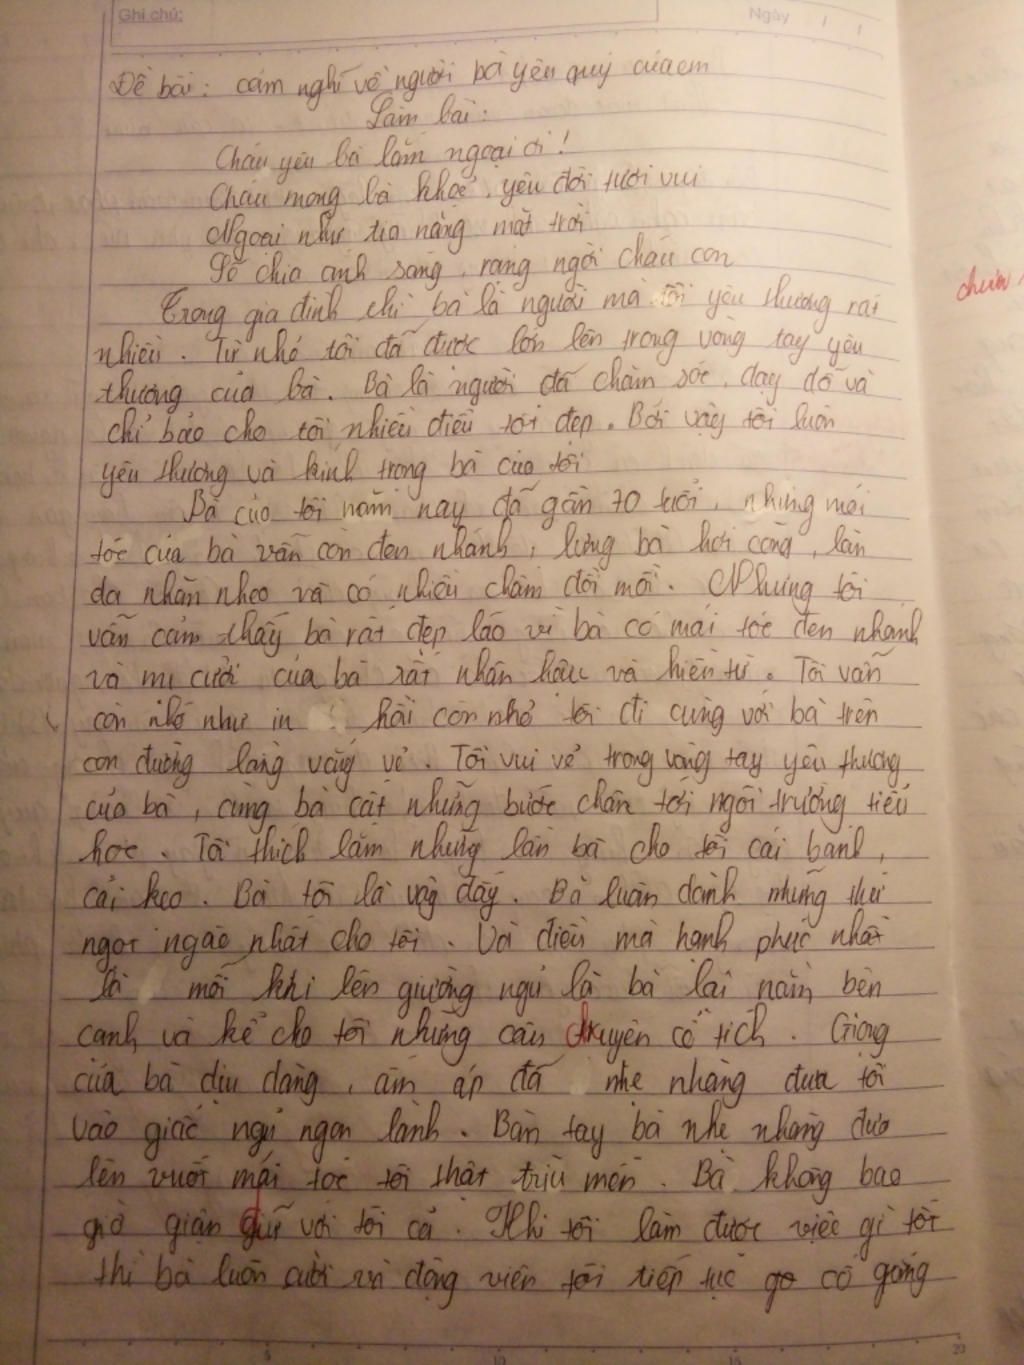 Ghi chú:
Ngày / /
Đề bài: cảm nghĩ về người bà yêu quý của em
Làm bài:
Cháu yêu bà lắm ngoại ơi!
Cháu mong bà khoẻ, yêu đời tươi vui
Ngoại như tia nắng mặt trời
Sẽ chia ánh sáng, rạng ngời cháu con
Trong gia đình chỉ bà là người mà tôi yêu thương rất
nhiều. Từ nhỏ tôi đã được lớn lên trong vòng tay yêu
thương của bà. Bà là người đã chăm sóc, dạy dỗ và
chỉ bảo cho tôi nhiều điều tốt đẹp. Bởi vậy tôi luôn
yêu thương và kính trọng bà của tôi
Bà của tôi năm nay đã gần 70 tuổi, nhưng mái
tóc của bà vẫn còn đen nhánh, lưng bà hơi còng, làn
da nhăn nheo và có nhiều chấm đồi mồi. Nhưng tôi
vẫn cảm thấy bà rất đẹp lão vì bà có mái tóc đen nhánh
và nụ cười của bà rất nhân hậu và hiền từ. Tôi vẫn
còn nhớ như in hồi còn nhỏ tôi đi cùng với bà trên
con đường làng vắng vẻ. Tôi vui vẻ trong vòng tay yêu thương
của bà, cùng bà cất những bước chân tới ngôi trường tiểu
học. Tôi thích lắm những lần bà cho tôi cái bánh,
cái kẹo. Bà tôi là vậy đấy. Bà luôn dành những thứ
ngọt ngào nhất cho tôi. Và điều mà hạnh phúc nhất
là mỗi khi lên giường ngủ là bà lại nằm bên
cạnh và kể cho tôi những câu chuyện cổ tích. Giọng
của bà dịu dàng, ấm áp đã nhẹ nhàng đưa tôi
vào giấc ngủ ngon lành. Bàn tay bà nhẹ nhàng đưa
lên vuốt mái tóc tôi thật trìu mến. Bà không bao
giờ giận giữ với tôi cả. Khi tôi làm được việc gì tốt
thì bà luôn cười và động viên tôi tiếp tục cố gắng
5 10 15 20